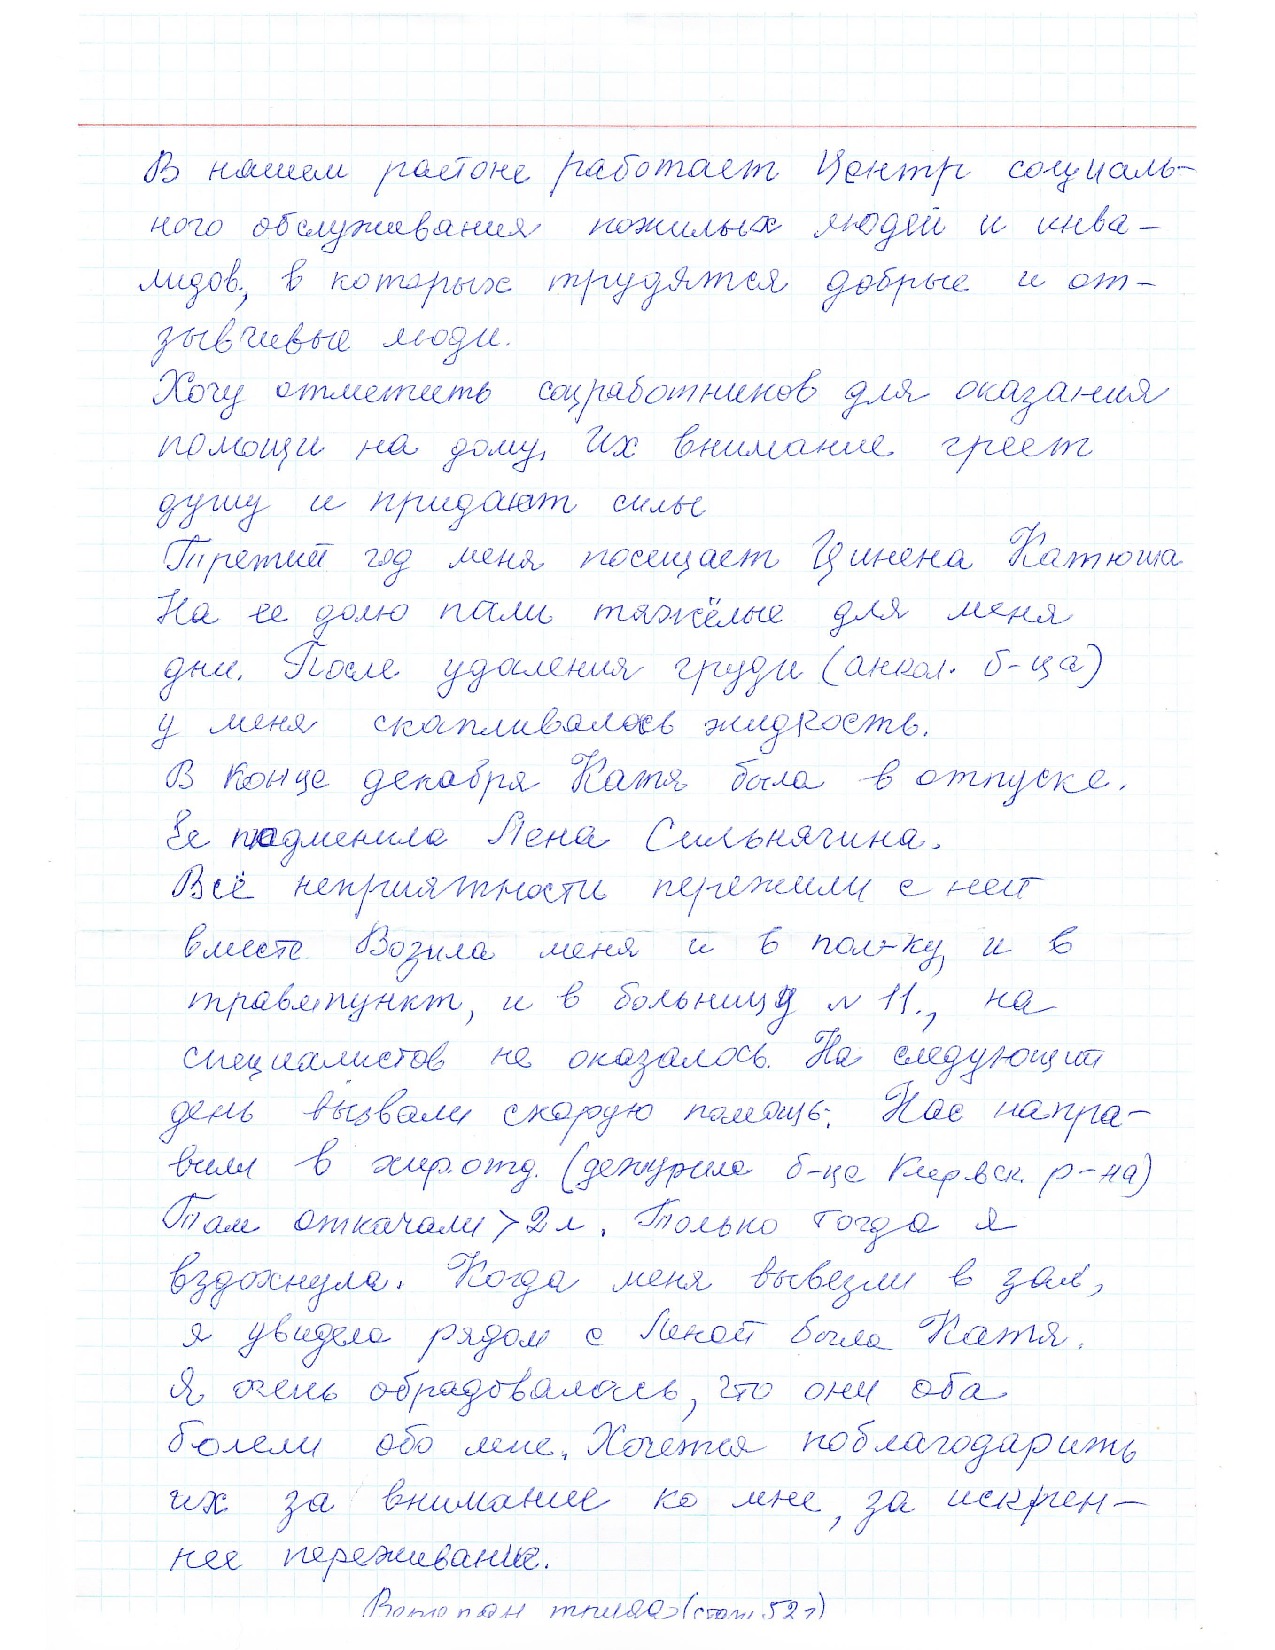 В нашем районе работает Центр социаль-
ного обслуживания пожилых людей и инва-
лидов, в которых трудятся добрые и от-
зывчивые люди.
Хочу отметить соцработников для оказания
помощи на дому. Их внимание греет
душу и придают силы
Третий год меня посещает Цинена Катюша
На ее долю пали тяжёлые для меня
дни. После удаления груди (анкол. б-ца)
у меня скапливалось жидкость.
В конце декабря Катя была в отпуске.
Ее подменила Лена Сильнягина.
Всё неприятности пережили с ней
вместе. Возила меня и в пол-ку, и в
травмпункт, и в больницу № 11., на
специалистов не оказалось. На следующий
день вызвали скорую помощь. Нас напра-
вили в хир.отд. (дежурила б-ца Кировск. р-на)
Там откачали >2 л. Только тогда я
вздохнула. Когда меня вывезли в зал,
я увидела рядом с Леной была Катя.
Я очень обрадовалась, что они оба
болели обо мне. Хочется поблагодарить
их за внимание ко мне, за искрен-
нее переживание.
Ветеран труда (стаж 52 г)